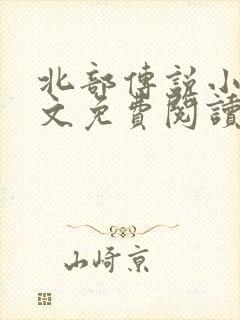 北部傳說小
文免費閱讀
山崎京